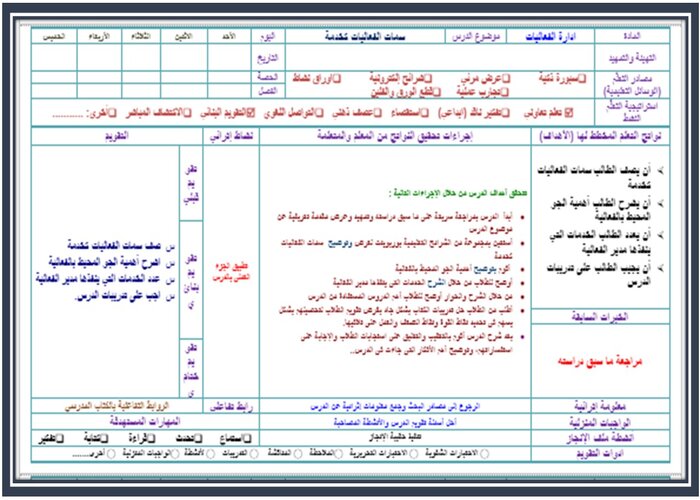 المادة
ادارة الفعاليات
موضوع الدرس
سمات الفعاليات كخدمة
اليوم
الأحد
الاثنين
الثلاثاء
الأربعاء
الخميس
التهيئة والتمهيد
التاريخ
مصادر التعلم
(الوسائل التعليمية)
سبورة ذكية
عرض مرئي
شرائح الكترونية
اوراق نشاط
تجارب عملية
قطع الورق والفلين
الحصة
الفصل
استراتيجية التعلم
النشط
تعلم تعاوني
تفكير ناقد (ابداعي)
استقصاء
عصف ذهني
التواصل اللغوي
التقويم البنائي
الاكتشاف المباشر
أخرى: ...........
نواتج التعلم المخطط لها (الأهداف)
إجراءات تحقيق النواتج من المعلم والمتعلمة
نشاط إثرائي
التقويم
أن يصف الطالب سمات الفعاليات كخدمة
أن يشرح الطالب أهمية الجو المحيط بالفعالية
أن يعدد الطالب الخدمات التي ينفذها مدير الفعالية
أن يجيب الطالب على تدريبات الدرس
الخبرات السابقة
مراجعة ما سبق دراسته
تتحقق أهداف الدرس من خلال الإجراءات التالية :
أبدأ الدرس بمراجعة سريعة على ما سبق دراسته وتمهيد وعرض مقدمة تعريفية عن موضوع الدرس
أستعين بمجموعة من الشرائح التعليمية بوربوينت لعرض وتوضيح سمات الفعاليات كخدمة
أقوم بتوضيح أهمية الجو المحيط بالفعالية
أوضح للطلاب من خلال الشرح الخدمات التي ينفذها مدير الفعالية
من خلال الشرح والحوار أوضح للطلاب أهم الدروس المستفادة من الدرس
أطلب من الطلاب حل تدريبات الكتاب بشكل جاد بغرض تقويم الطلاب لتحصيلهم بشكل يسهم في تحديد نقاط القوة ونقاط الضعف والعمل على
بعد شرح الدرس أقوم بالتعقيب والتعليق على استجابات الطلاب والإجابة على استفساراتهم، وتوضيح أهم الأفكار التي جاءت في الدرس..
تطبيق الجزء العملي بالدرس
تقويم قبلي
تقويم بنائي
تقويم ختامي
صف سمات الفعاليات كخدمة
اشرح أهمية الجو المحيط بالفعالية
عدد الخدمات التي ينفذها مدير الفعالية
اجب على تدريبات الدرس.
معلومة إثرائية
الرجوع إلى مصادر البحث وجمع معلومات إثرائية عن الدرس
رابط تفاعلي
الروابط التفاعلية بالكتاب المدرسي
الواجبات المنزلية
أحل أسئلة تقويم الدرس والأنشطة المصاحبة
المهارات المستهدفة
أنشطة ملف الإنجاز
حقيبة الإنجاز
استماع
تحدث
قراءة
كتابة
تفكير
ادوات التقويم
الاختبارات الشفوية
الاختبارات التحريرية
الملاحظة
المناقشة
التدريبات
أنشطة
الواجبات المنزلية
أخرى.......